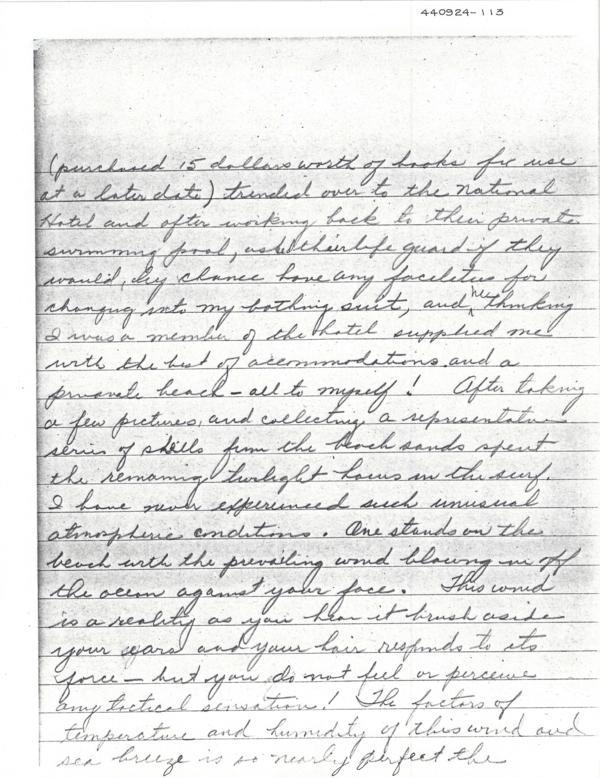 440924-113
(purchased 15 dollars worth of books for use
at a later date) trended over to the National
Hotel and after working back to their private
swimming pool, asked their life guard if they
would, by chance have any facilities for
changing into my bathing suit, and he thinking
I was a member of the hotel supplied me
with the best of accommodations and a
private beach - all to myself! After taking
a few pictures, and collecting a representative
series of shells from the beach sands spent
the remaining twilight hours in the surf.
I have never experienced such unusual
atmospheric conditions. One stands on the
beach with the prevailing wind blowing in off
the ocean against your face. This wind
is a reality as you hear it brush aside
your ears and your hair responds to its
force - but you do not feel or perceive
any tactical sensation! The factors of
temperature and humidity of this wind and
sea breeze is so nearly perfect the